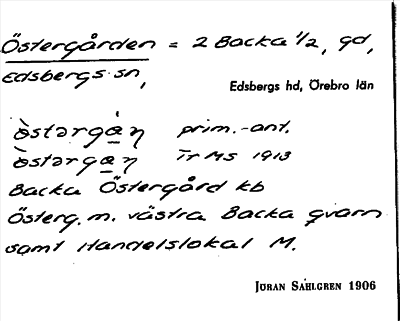 Östergården = 2 Backa 1/2, gd,
Edsbergs sn,
Edsbergs hd, Örebro län
òstərgὰ̱ŋ prim.-ant.
òstərga̱ŋ Tr MS 1913
Backa Östergård kb
Österg. m. västra Backa qvarn
samt Handelslokal M.
JÖRAN SAHLGREN 1906